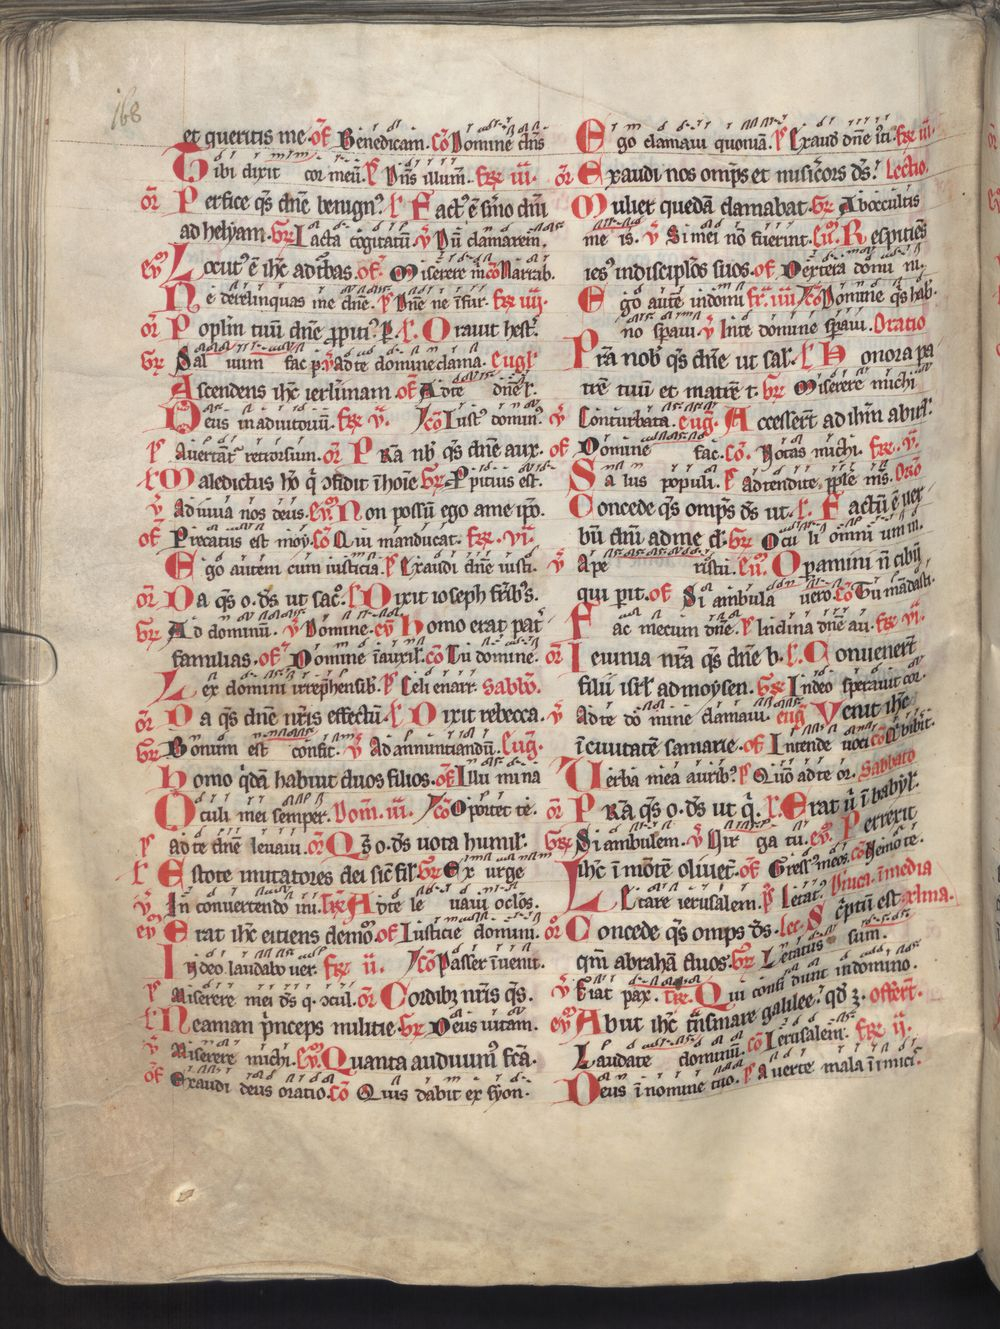 168
et queritis me. of Benedicam. co Domine dns
Tibi dixit cor meū. ps Dn̄s illum. fr̄ iii.
or̄ Perfice qs dn̄e benign⁹. l' Fact⁹ ē sm̄o dn̄i
ad helyam. gr̄ Iacta cogitatū. v̄ Dū clamarem.
ev̄ Locut⁹ ē ihc̄ ad t̄bas. of Miserere m̄. co Narrab.
Ne derelinquas me dn̄e. ps Dn̄e ne ī fur. fr̄ iiii.
or̄ Poplm̄ tuū dn̄e ꝓpiti⁹. l' Oravit hest̄.
gr̄ Sal uum fac p̄. v̄ ad te domine clama. euḡl
Ascendens ihc̄ ierl̄imam. of Ad te dn̄e l.
Deus in adiutoriū. fr̄ v̄. co Iust⁹ domin⁹. v̄
ps Avertant̄ retrorsum. or̄ Pr̄a nb̄ qs dn̄e aux. of
l' Maledictus hō q̄ ꝯfidit ī hoīe gr̄ Ppitius est.
v̄ Adiuva nos deus. ev̄ Non possū ego a me ip̄o.
of Precatus est moy. co Qui manducat. fr̄ vi.
Ego autem cum iusticia. ps Exaudi dn̄e iusti. v̄
or̄ Da qs o. ds̄ ut sac̄. l' Dixit ioseph fr̄ib⁹ s.
gr̄ Ad dominū. v̄ Domine. ev̄ Homo erat pat̄
familias. of Domine ī auxil. co Tu domine. or̄
Lex domini irrep̄hensib. ps Celi enarr. Sabbō.
or̄ Da qs dn̄e nr̄is effectū. l' Dixit rebecca. v̄
gr̄ Bonum est confit. v̄ Ad annuntiandū. Euḡ.
Homo q̄dā habuit duos filios. of Illu mina
Oculi mei semper. Dom̄. iii. co Oportet te. or̄
ps Ad te dn̄e levavi. or̄ Qs o. ds̄ vota humil. gr̄
l' Estote imitatores dei sic̄ fil. gr̄ Ex urge
v̄ In convertendo ini. tr̄ Ad te le vavi oclōs.
ev̄ Erat ihc̄ eitiens demō. of Iusticie domini. or̄
In deo laudabo ver. fr̄ ii. co Passer īvenit.
ps Miserere mei ds̄ q. ꝯcul. or̄ Cordib; nr̄is qs. v̄
l' Neaman p̄nceps militie. gr̄ Deus vitam. ev̄
v̄ Miserere michi. ev̄ Quanta audivim⁹ fc̄a.
of Exaudi deus oratio. co Quis dabit ex syon.
Ego clamavi quoniā. ps Exaud dn̄e iti. fr̄ iii.
or̄ Exaudi nos omp̄s et misic̄ors ds̄. Lectio.
Mulier quedā clamabat. gr̄ Ab occultis
me is. v̄ Si mei nō fuerint. eu. Respiciēs
ies⁹ in discip̄los suos. of Dextera domi ni.
Ego aute in domi fr̄. iiii co Domine qs hab.
no sp̄avi. v̄ In te domine sp̄avi. Oratio
Pr̄a nob̄ qs dn̄e ut sal. l' Honora pa
trē tuū et matrē t. gr̄ Miserere michi
Conturbata. euḡ. Accesserūt ad ihm̄ ab iusl.
Domine fac. co. Notas michi. fr̄. v̄.
Sa lus populi. ps Attendite pple ms. Oro
Concede qs omp̄s ds̄ ut. l'. Factū ē ver
bū dn̄i ad me d. gr̄ Ocu li omni um in.
Ape ristu. eu. Operamini n̄ cibū
qui p̄it. of Si ambula vero. co Tu mādasti.
Fac mecum dn̄e. ps Inclina dn̄e au. fr̄ vi.
Ieiunia nr̄a qs dn̄e b. l'. Convenert̄
filii isrl̄ ad moysen. gr̄ In deo speravit cor.
Ad te do mine clamavi. euḡ Venit ihc̄
ī civitatē samarie. of Intende voci co Q̄ bibit.
Verba mea aurib⁹. ps Quō ad te or. Sabbato
Pr̄a qs o. ds̄ ut q. l'. Erat v̄ ī babyl.
Si ambulem. v̄ Vir ga tu. ev̄. Perrexit
Ihc̄ ī mōte oliveti. of Gress⁹ meos. co Nemo te.
Letare ierusalem. ps Letat⁹. Dn̄ica. ī media
Concede qs omps ds̄. lec. Sc̄ptū est. xlma.
qm̄ abrahā duos. gr̄ Letatus sum.
Fiat pax. tr̄. Qui confi dunt in domino.
Abiit ihc̄ t̄nsmare galilee. qd̄ ꝫ. offert̄.
Laudate dominū. co Ierusalem. fr̄ ii.
Deus ī nomine tuo. ps Averte mala īimici⁹